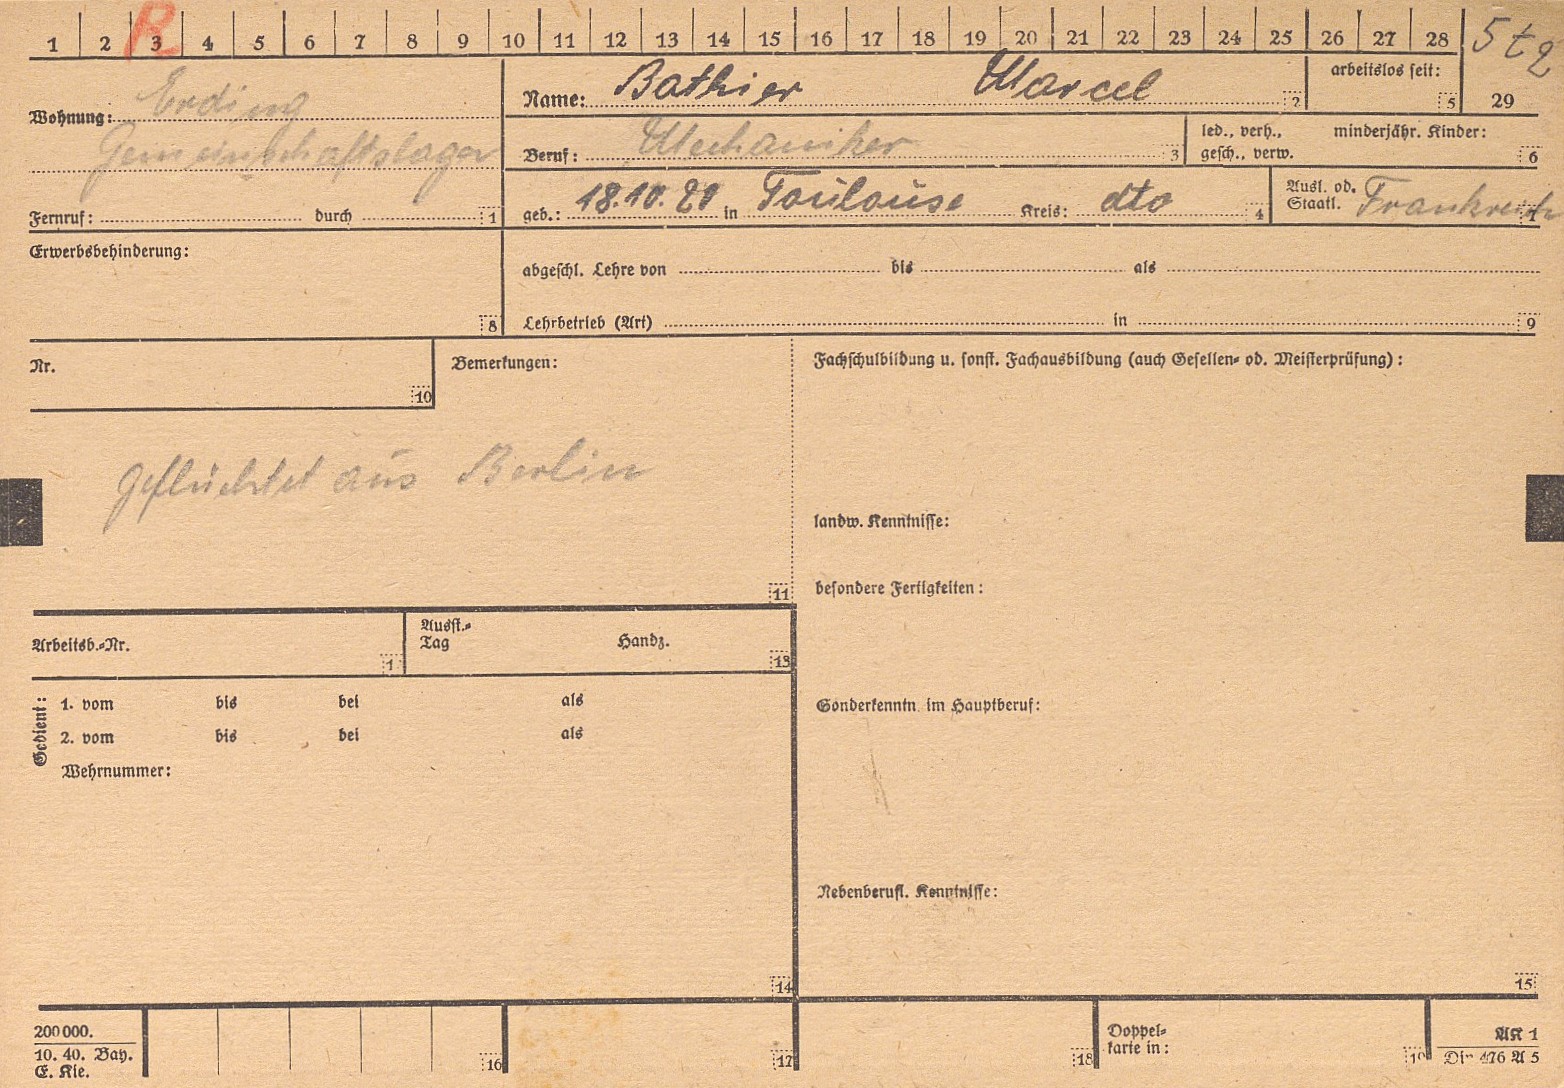 1 2 3 4 5 6 7 8 9 10 11 12 13 14 15 16 17 18 19 20 21 22 23 24 25 26 27 28
R
29
Wohnung: Erding
Gemeinschaftslager
Fernruf: durch 1
Name: Bathier Marcel 2
arbeitslos seit: 5
Beruf: Mechaniker 3
led., verh., minderjähr. Kinder:
gesch., verw. 6
geb.: 18.10.20 in Toulouse Kreis: dto 4
Ausl. od.
Staatl. Frankreich 7
Erwerbsbehinderung:
8
abgeschl. Lehre von bis als
Lehrbetrieb (Art) in 9
Nr.
10
Bemerkungen:
geflüchtet aus Berlin
11
Fachschulbildung u. sonst. Fachausbildung (auch Gesellen- od. Meisterprüfung):
landw. Kenntnisse:
besondere Fertigkeiten:
Sonderkenntn. im Hauptberuf:
Nebenberufl. Kenntnisse:
15
Arbeitsb.-Nr.
1
Ausst.-
Tag Handz.
13
Gedient:
1. vom bis bei als
2. vom bis bei als
Wehrnummer:
14
200 000.
10. 40. Bay.
E. Kie.
16
17
18
Doppel-
karte in:
19
AK 1
Din 476 A 5